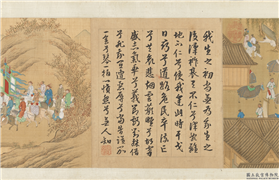 我生之初尚無為我生之
後漢祚衰天不仁兮降亂
離地不仁兮使我逢此時干戈
日尋兮道路危民卒流亡
兮共哀悲煙塵蔽野兮胡虜
盛志意乖兮節義虧對殊俗
兮非我宜遭惡辱兮當告誰笳
一會兮琴一拍心憤怨兮無人知